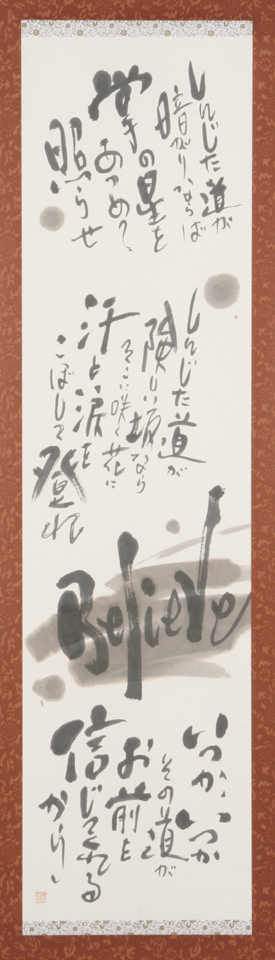 しんじた道が
暗がりならば
掌の星を
あつめて
照らせ
しんじた道が
険しい坂なら
そこに咲く花に
汗と涙を
こぼして
登れ
Believe
いつか、いつか
その道が
お前と
信じてくれる
から